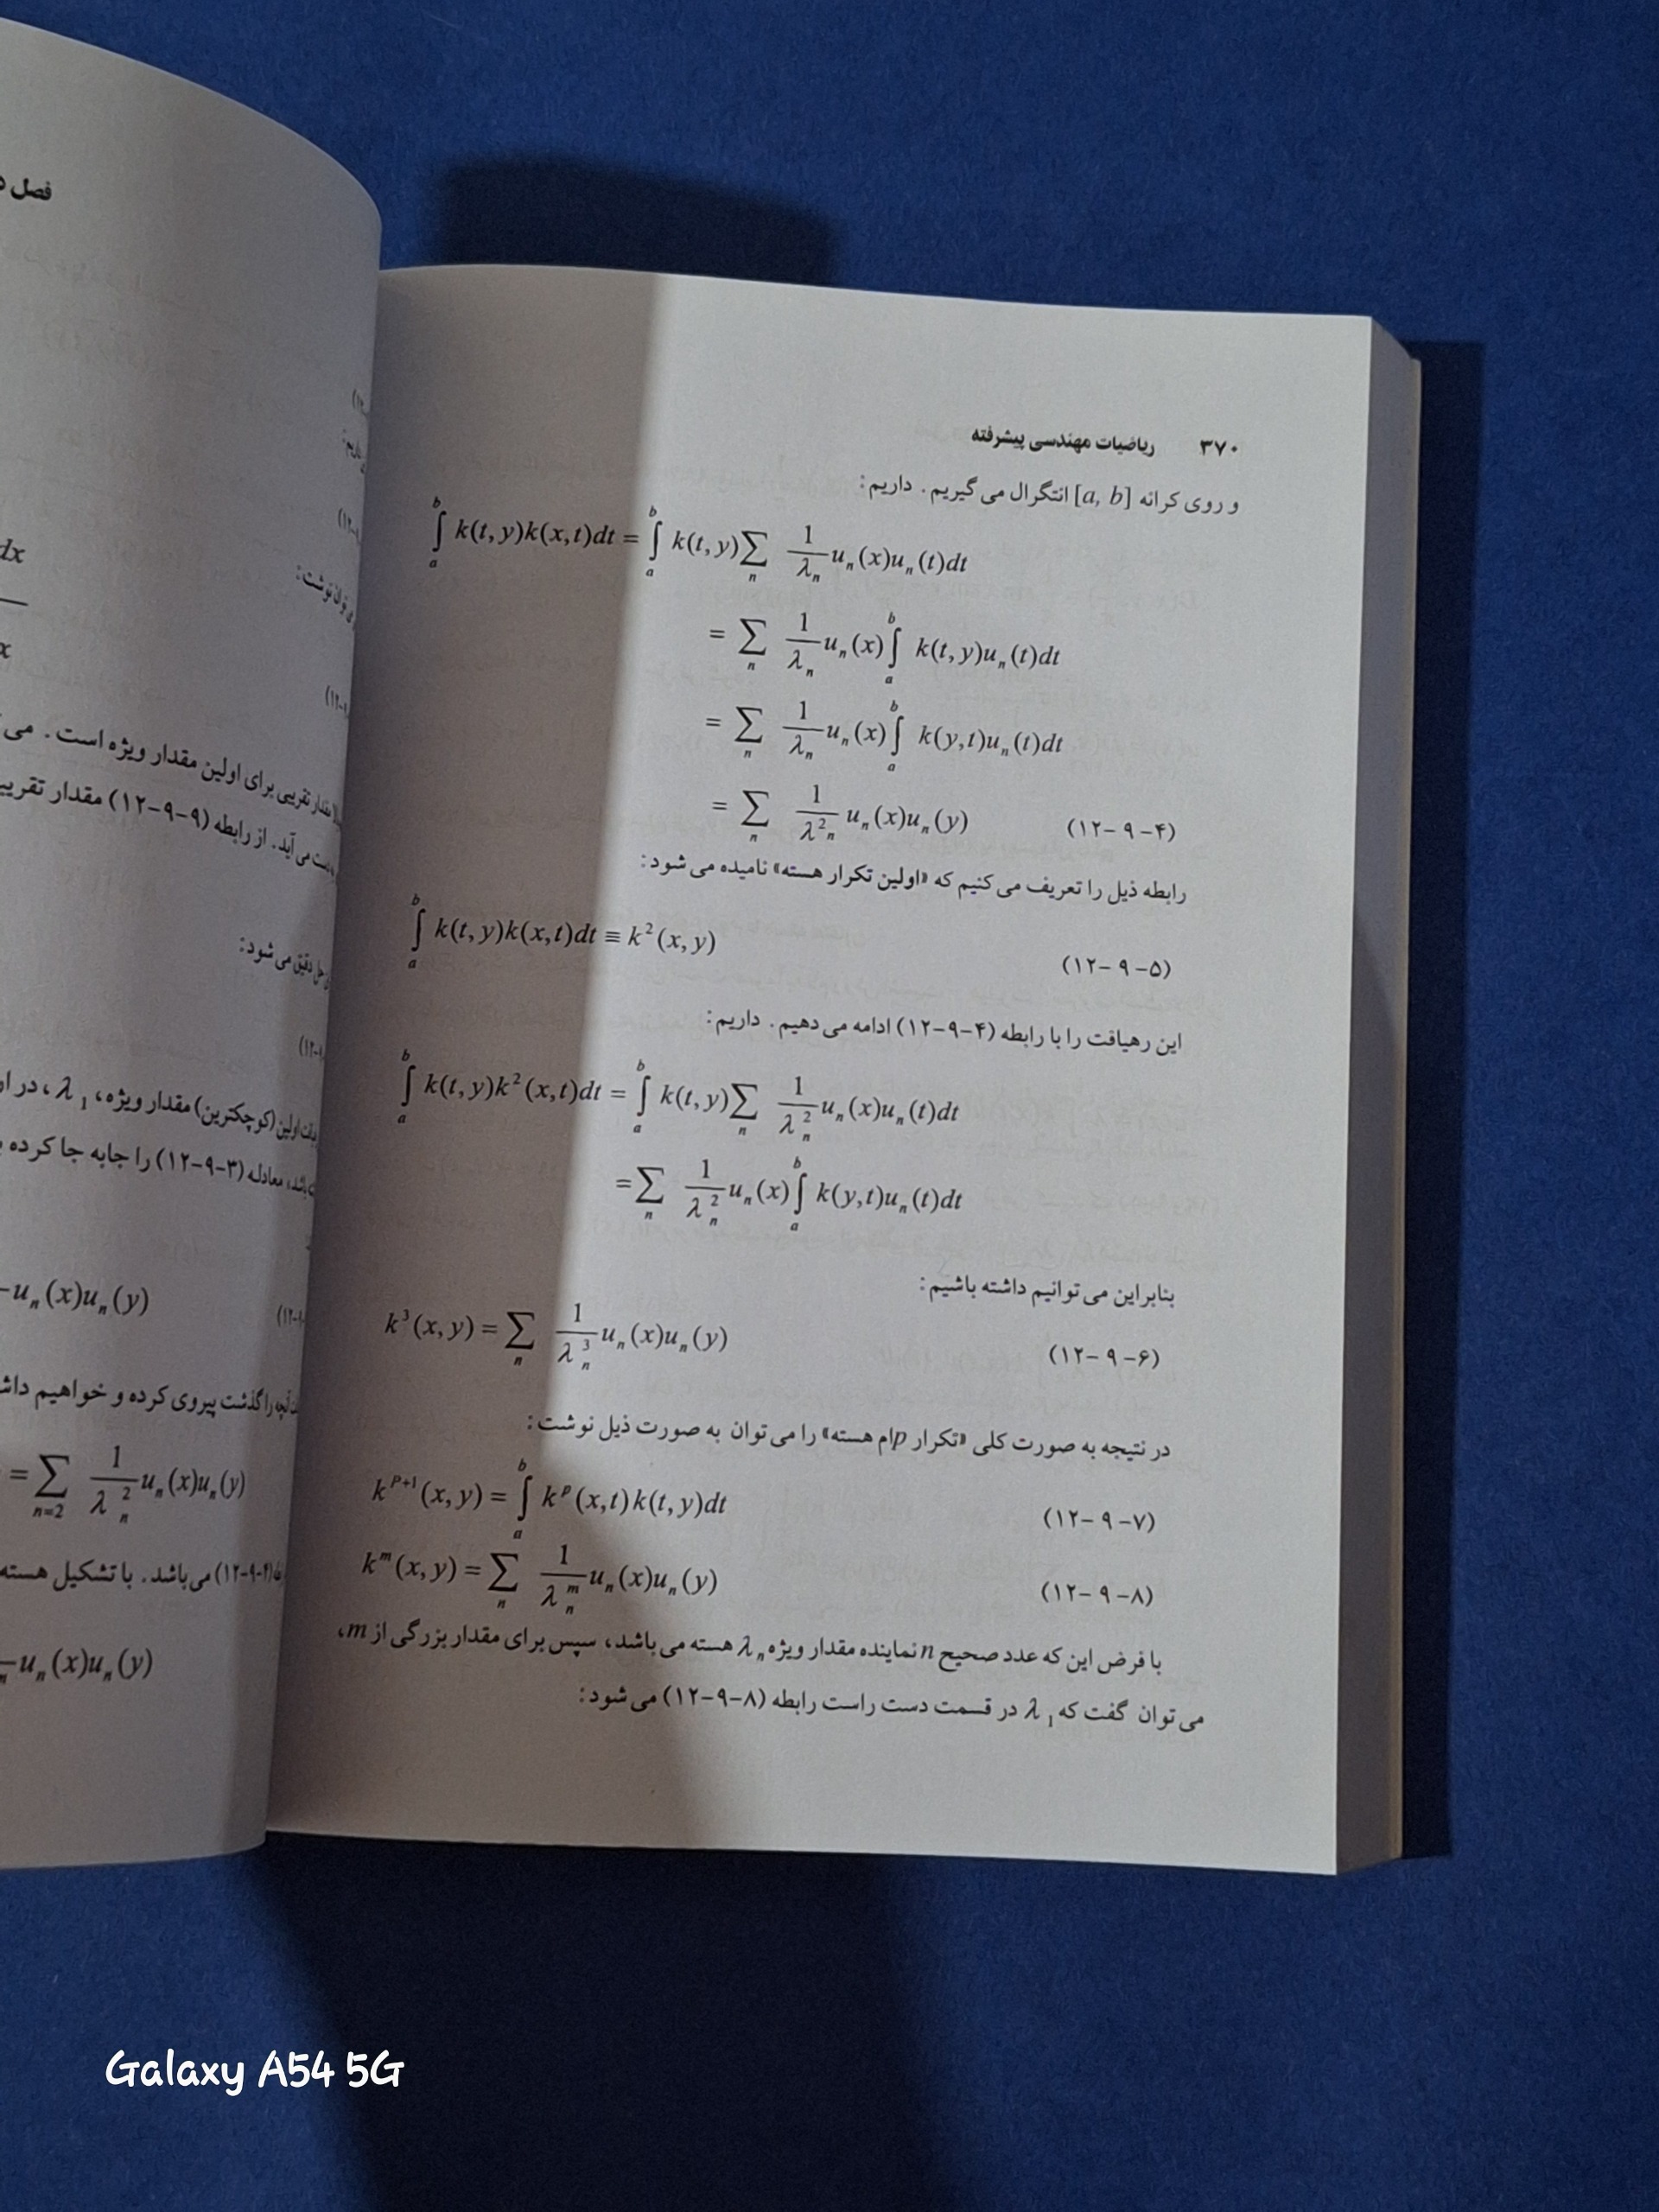 ۳۷۰ ریاضیات مهندسی پیشرفته
و روی کرانه [a, b] انتگرال می گیریم. داریم:
∫_a^b k(t, y)k(x,t)dt = ∫_a^b k(t, y)∑_n 1/λ_n u_n(x)u_n(t)dt
= ∑_n 1/λ_n u_n(x)∫_a^b k(t, y)u_n(t)dt
= ∑_n 1/λ_n u_n(x)∫_a^b k(y,t)u_n(t)dt
= ∑_n 1/λ²_n u_n(x)u_n(y) (۱۲-۹-۴)
رابطه ذیل را تعریف می کنیم که «اولین تکرار هسته» نامیده می شود:
∫_a^b k(t, y)k(x,t)dt ≡ k²(x, y) (۱۲-۹-۵)
این رهیافت را با رابطه (۱۲-۹-۴) ادامه می دهیم. داریم:
∫_a^b k(t, y)k²(x,t)dt = ∫_a^b k(t, y)∑_n 1/λ_n² u_n(x)u_n(t)dt
=∑_n 1/λ_n² u_n(x)∫_a^b k(y,t)u_n(t)dt
بنابراین می توانیم داشته باشیم:
k³(x, y) = ∑_n 1/λ_n³ u_n(x)u_n(y) (۱۲-۹-۶)
در نتیجه به صورت کلی «تکرار pام هسته» را می توان به صورت ذیل نوشت:
k^{p+1}(x, y) = ∫_a^b k^p(x,t)k(t, y)dt (۱۲-۹-۷)
k^m(x, y) = ∑_n 1/λ_n^m u_n(x)u_n(y) (۱۲-۹-۸)
با فرض این که عدد صحیح n نماینده مقدار ویژه λ_n هسته می باشد، سپس برای مقدار بزرگی از m،
می توان گفت که λ_1 در قسمت دست راست رابطه (۱۲-۹-۸) می شود:
فصل
dx
x
می توان نوشت:
مقدار تقریبی برای اولین مقدار ویژه است. می
بدست می آید. از رابطه (۱۲-۹-۹) مقدار تقریبی
حل دقیق می شود:
اولین (کوچکترین) مقدار ویژه، λ_1، در
باشد، معادله (۱۲-۹-۳) را جابه جا کرده
u_n(x)u_n(y)
آنچه را گذشت پیروی کرده و خواهیم
= ∑_{n=2} 1/λ_n² u_n(x)u_n(y)
(۱۲-۹-۴) می باشد. با تشکیل هسته
u_n(x)u_n(y)
Galaxy A54 5G